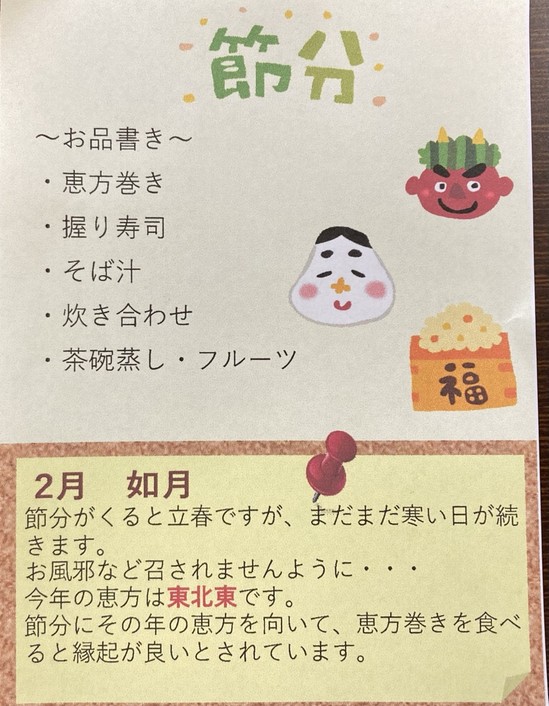 節分
～お品書き～
・恵方巻き
・握り寿司
・そば汁
・炊き合わせ
・茶碗蒸し・フルーツ
福
2月　如月
節分がくると立春ですが、まだまだ寒い日が続
きます。
お風邪など召されませんように・・・
今年の恵方は東北東です。
節分にその年の恵方を向いて、恵方巻きを食べ
ると縁起が良いとされています。